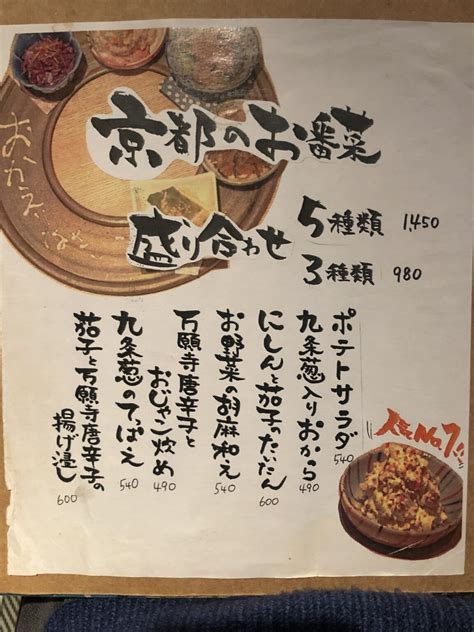 京都のお番菜
盛り合わせ
5種類 1,450
3種類 980
ポテトサラダ 540
九条葱入りおから 490
にしんと茄子のたいたん 600
お野菜の胡麻和え 540
万願寺唐辛子と
おじゃこ炒め 490
九条葱のてっぱえ 540
茄子と万願寺唐辛子の
揚げ浸し 600
人気No.1!!
おかえり